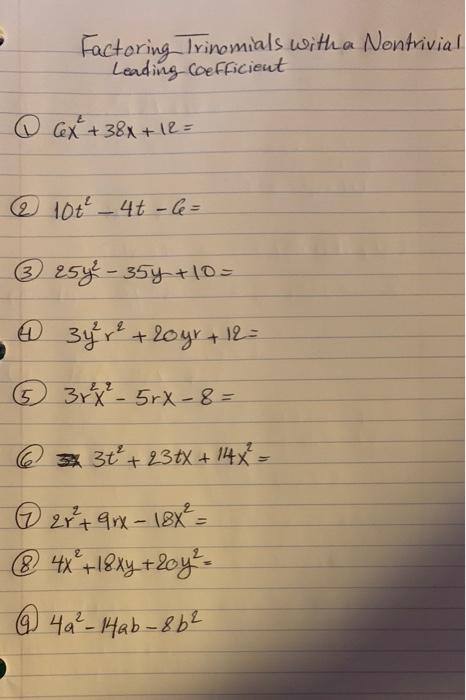 Factoring Trinomials with a Nontrivial
Leading Coefficient
① 6x² + 38x + 12 =
② 10t² - 4t - 6 =
③ 25y² - 35y + 10 =
④ 3y²r² + 20yr + 12 =
⑤ 3r²x² - 5rx - 8 =
⑥ 3t² + 23tx + 14x² =
⑦ 2r² + 9rx - 18x² =
⑧ 4x² + 18xy + 20y² =
⑨ 4a² - 14ab - 8b²